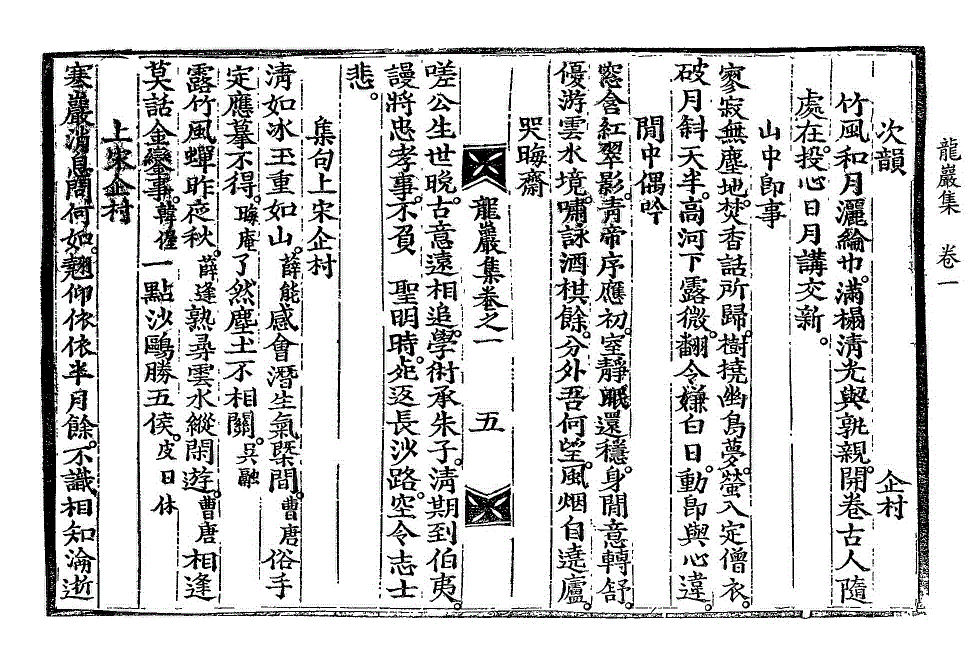 龍巖集　卷一
次韻　　企村
竹風和月灑綸巾。滿榻淸光與孰親。開卷古人隨
處在。投心日月講交新。
山中卽事
寥寂無塵地。焚香話所歸。樹撓幽鳥夢。螢入定僧衣。
破月斜天半。高河下露微。翻令嫌白日。動卽與心違。
閒中偶吟
窓含紅翠影。靑帝序應初。室靜眠還穩。身閒意轉舒。
優游雲水境。嘯詠酒棋餘。分外吾何望。風烟自遶廬。
哭晦齋
龍巖集卷之一　五
嗟公生世晩。古意遠相追。學術承朱子。淸期到伯夷。
謾將忠孝事。不負　聖明時。死返長沙路。空令志士
悲。
集句上宋企村
淸如冰玉重如山。薛能感會潛生氣槩間。曹唐俗手
定應摹不得。晦庵了然塵土不相關。吳融
露竹風蟬昨夜秋。薛逢熟尋雲水縱閑遊。曹唐相逢
莫話金鑾事。韓偓一點沙鷗勝五侯。皮日休
上宋企村
寒巖消息閴何如。翹仰依依半月餘。不識相知淪逝